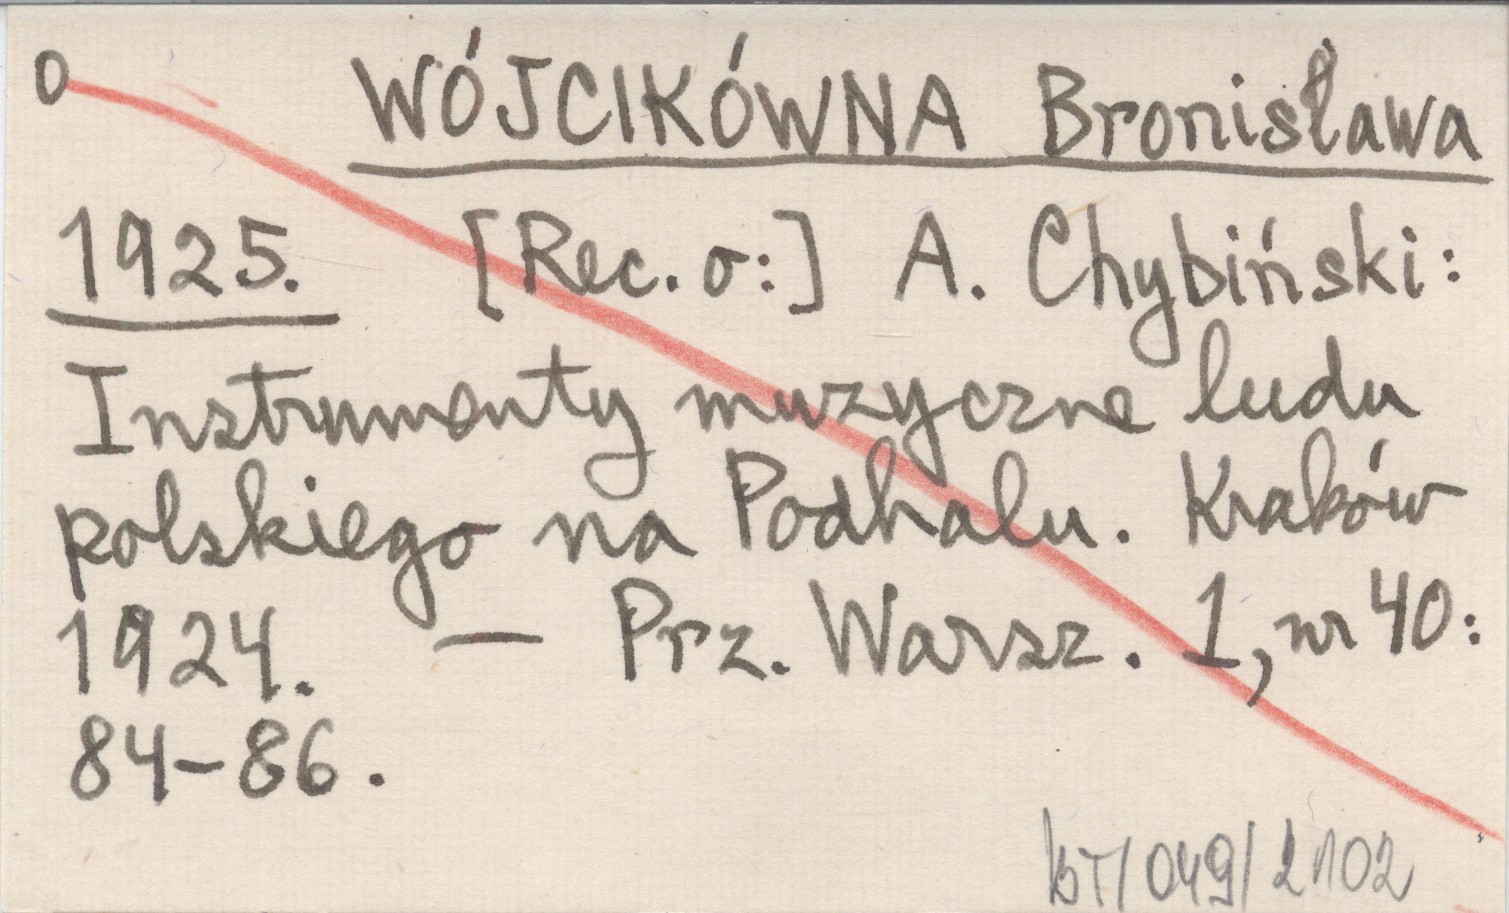 0 WÓJCIKÓWNA Bronisława
1925. [Rec. o:] A. Chybiński:
Instrumenty muzyczne ludu
polskiego na Podhalu. Kraków
1924. — Prz. Warsz. 1, nr 40:
84-86.
BT/049/2102